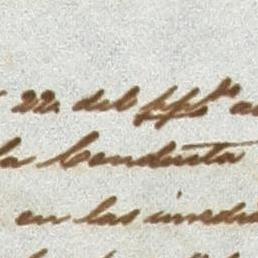 22. del ppdo
la Conducta
en las inmedi